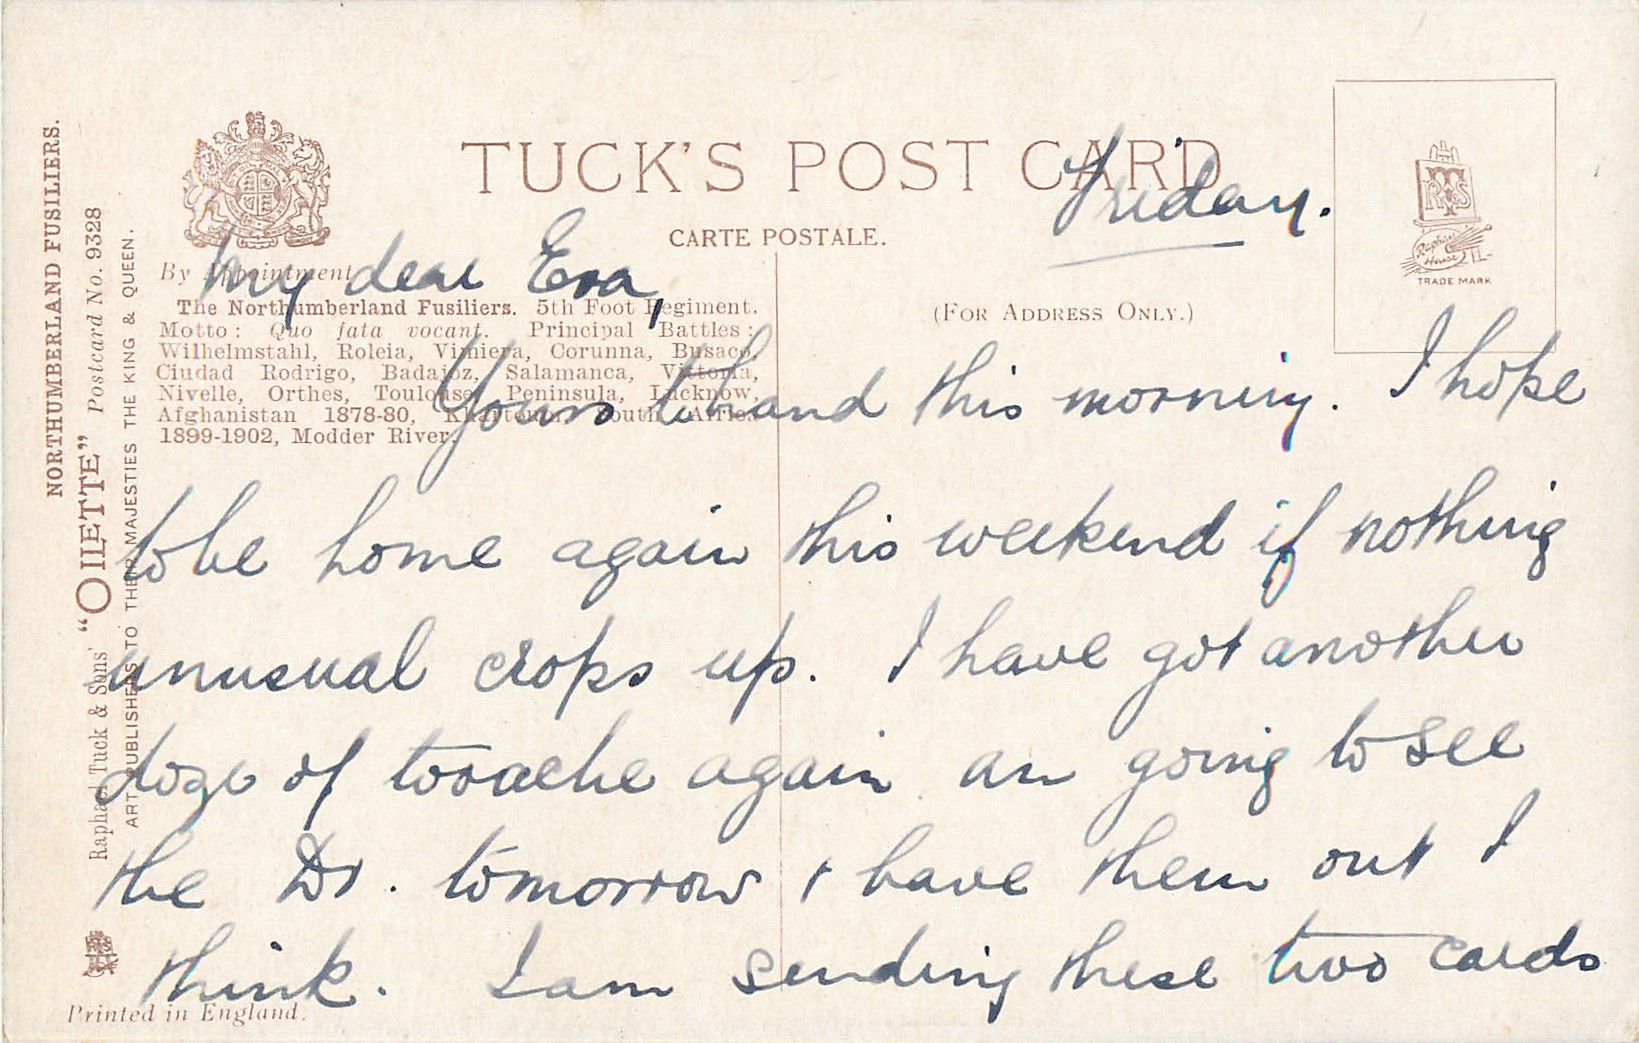 TUCK'S POST CARD
CARTE POSTALE.
(FOR ADDRESS ONLY.)
By Appointment
The Northumberland Fusiliers. 5th Foot Regiment.
Motto: Quo fata vocant. Principal Battles:
Wilhelmstahl, Roleia, Vimiera, Corunna, Busaco,
Ciudad Rodrigo, Badajoz, Salamanca, Vittoria,
Nivelle, Orthes, Toulouse, Peninsula, Lucknow,
Afghanistan 1878-80, Khartoum, South Africa
1899-1902, Modder River.
NORTHUMBERLAND FUSILIERS.
Raphael Tuck & Sons' "OILETTE" Postcard No. 9328
ART PUBLISHERS TO THEIR MAJESTIES THE KING & QUEEN.
RTS
Raphael
House
TRADE MARK
Printed in England.
Friday.
My dear Eva,
Yours to hand this morning. I hope
to be home again this weekend if nothing
unusual crops up. I have got another
doze of tooache again an going to see
the Dr. tomorrow & have them out I
think. I am sending these two cards